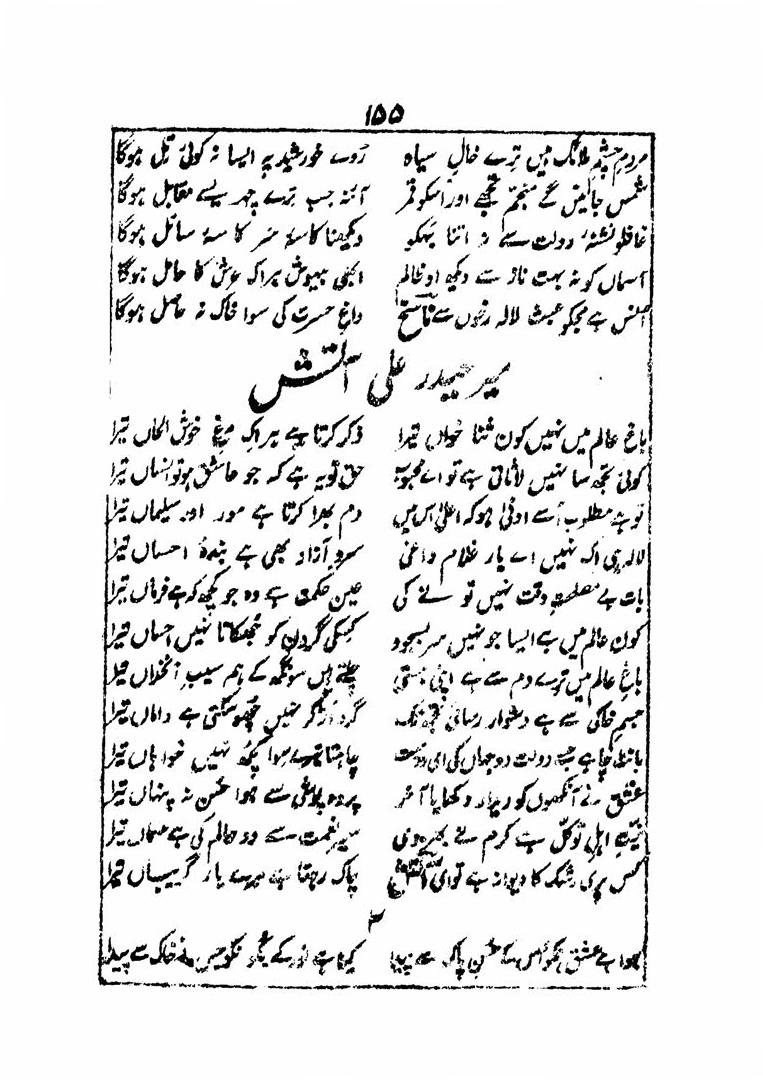 ۱۵۵
مردم چشم ملائک ہیں ترے خال سیاہ روے خورشید پہ ایسا نہ کوئی تل ہوگا
شمس جانیں گے منجم تجھے اور اسکو قمر آئنہ جب ترے چہرے سے مقابل ہوگا
غافلو نشۂ دولت سے نہ اتنا بہکو دیکھنا کاسۂ سر کاسۂ سائل ہوگا
آسماں کو نہ بہت ناز سے دیکھ او ظالم ابھی بیہوش ہر اک عرش کا حامل ہوگا
انس ہے مجکو عبث لالہ رخوں سے ناسخ داغ حسرت کی سوا خاک نہ حاصل ہوگا
میر حیدر علی آتش
باغ عالم میں نہیں کون ثنا خواں تیرا ذکر کرتا ہے ہر اک مرغ خوش الحاں تیرا
کوئی تجھ سا نہیں لاثانی ہے تو اے محبوب حق تو یہ ہے کہ جو عاشق ہو تو انساں تیرا
تو ہے مطلوب اسے ادنیٰ ہو کہ اعلیٰ اس میں دم بھرا کرتا ہے مور اور سلیماں تیرا
لالہ ہی اک نہیں اے یار غلام داغی سرو آزاد بھی ہے بندۂ احساں تیرا
بات بے مصلحت وقت نہیں تو نے کی عین حکمت ہے وہ جو کچھ کہ ہے فرماں تیرا
کون عالم میں ہے ایسا جو نہیں سر بسجود کسکی گردن کو جھکاتا نہیں احساں تیرا
باغ عالم میں ترے دم سے ہے اپنی ہستی جیتے ہیں سونگھ کے ہم سیب زنخداں تیرا
جسم خاکی سے ہے دشوار رسائی تجھ تک گرد اڑ کر نہیں چھو سکتی ہے داماں تیرا
مانگتا چاہے جب دولت دو جہاں کی اے دوست چاہتا تیرے سوا کچھ نہیں خواہاں تیرا
عشق نے آنکھوں کو دیدار دکھایا آخر پردہ سے ہوا حسن نہ پنہاں تیرا
نیت اہل توکل ہے کرم نے بھر دی سیر نعمت سے دو عالم کی ہے مہماں تیرا
کس پری رشک کا دیوانہ ہے تو اے آتش چاک رہتا ہے مرے یار گریباں تیرا
۲
ہوا ہے عشق ہمکو اس کے حسن پاک سے پیدا کیا ہے نور کے نے خاک سے پیدا